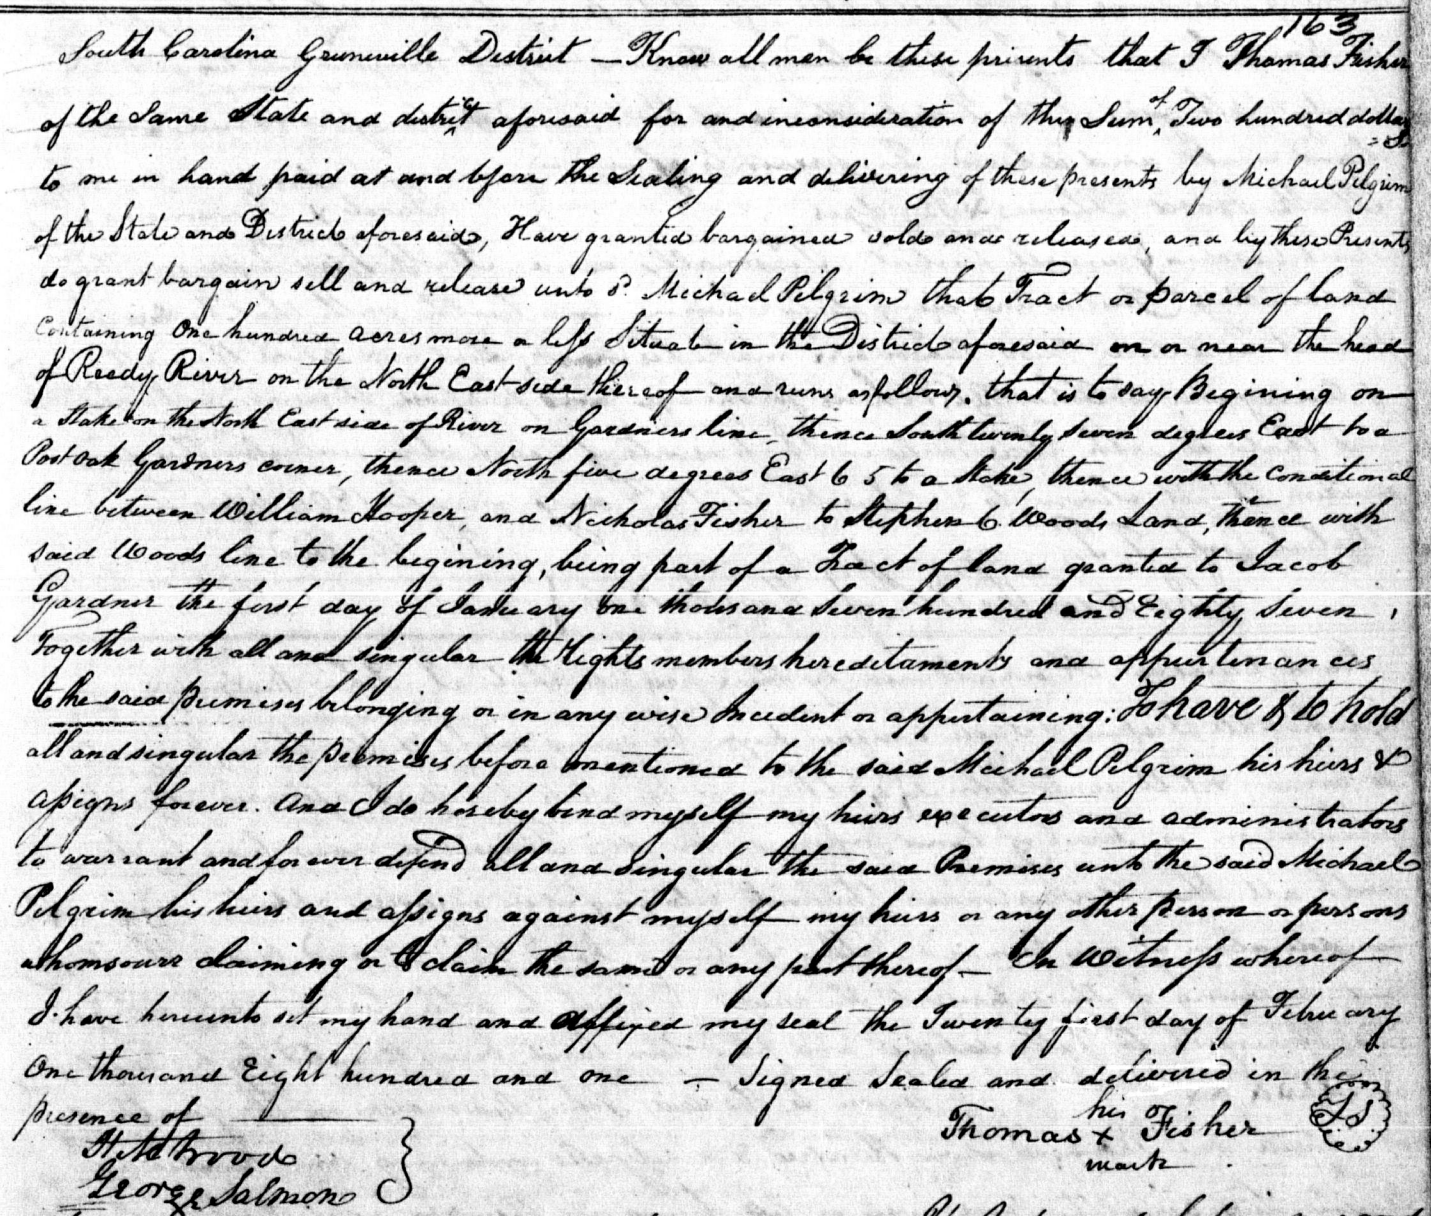 163
South Carolina Greneville District — Know all men be these presents that I Thomas Fisher
of the Same State and district aforesaid for and inconsideration of the Sum of Two hundred dollars
to me in hand paid at and before the Sealing and delivering of these presents by Michael Pilgrim
of the State and District aforesaid, Have granted bargained sold and released, and by these Presents
do grant bargain sell and release unto sd. Michael Pilgrim that Tract or parcel of land
Containing One hundred acres more or less Situate in the District aforesaid on or near the head
of Reedy River on the North East side thereof and runs as follows, that is to say Begining on
a Stake on the North East side of River on Gardners line, thence South twenty Seven degrees East to a
Post oak Gardners corner, thence North five degrees East 65 to a Stake, thence with the Conditional
line between William Hooper, and Nicholas Fisher to Stephen C. Woods Land, thence with
said Woods line to the begining, being part of a Tract of land granted to Jacob
Gardner the first day of January one thousand Seven hundred and Eighty Seven,
Together with all and singular the Rights members hereditaments and appurtenances
to the said premises belonging or in any wise Incident or appertaining: To have & to hold
all and singular the premises before mentioned to the said Michael Pilgrim his heirs &
assigns forever. And I do hereby bind myself my heirs executors and administrators
to warrant and forever defend all and singular the said Premises unto the said Michael
Pilgrim his heirs and assigns against myself my heirs or any other person or persons
whomsoever claiming or to claim the same or any part thereof — In Witness whereof
I have hereunto set my hand and affixed my seal the Twenty first day of February
One thousand Eight hundred and one — Signed Sealed and delivered in the
presence of
his
Thomas x Fisher LS
mark
George Salmon